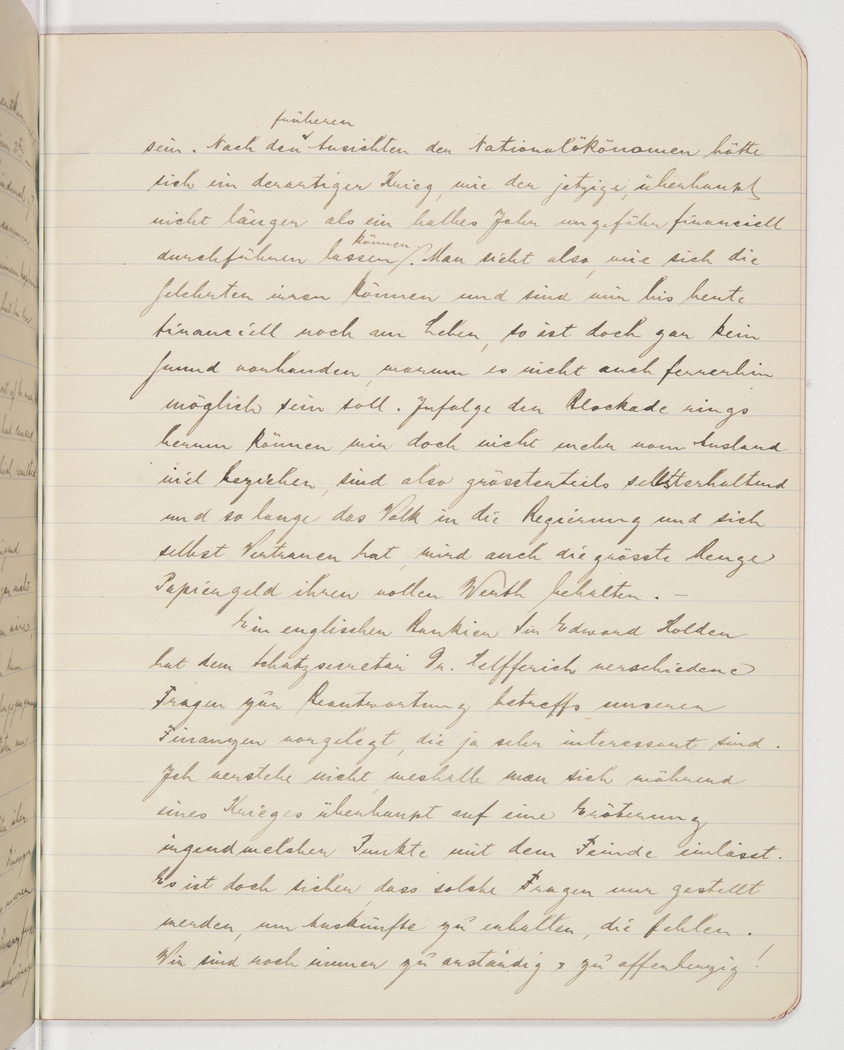 früheren
sein. Nach den Ansichten der Nationalökönomen hätte
sich ein derartiger Krieg, wie der jetzige, überhaupt
nicht länger als ein halbes Jahr ungefähr financiell
können
durchführen lassen. Man sieht also, wie sich die
Gelehrten irren können und sind wir bis heute
financiell noch am Leben, so ist doch gar kein
Grund vorhanden, warum es nicht auch fernerhin
möglich sein soll. Infolge der Blockade rings
herum können wir doch nicht mehr vom Ausland
viel beziehen, sind also grösstenteils selbsterhaltend
und so lange das Volk in die Regierung und sich
selbst Vertrauen hat, wird auch die grösste Menge
Papiergeld ihren vollen Werth behalten. —
Ein englischer Bankier Sir Edward Holden
hat dem Schatzsecretär Dr. Helfferich verschiedene
Fragen zur Beantwortung betreffs unserer
Finanzen vorgelegt, die ja sehr interessant sind.
Ich verstehe nicht, weshalb man sich während
eines Krieges überhaupt auf eine Erörterung
irgendwelcher Punkte mit dem Feinde einlässt.
Es ist doch sicher, dass solche Fragen nur gestellt
werden, um Auskünfte zu erhalten, die fehlen.
Wir sind noch immer zu anständig & zu offenherzig!